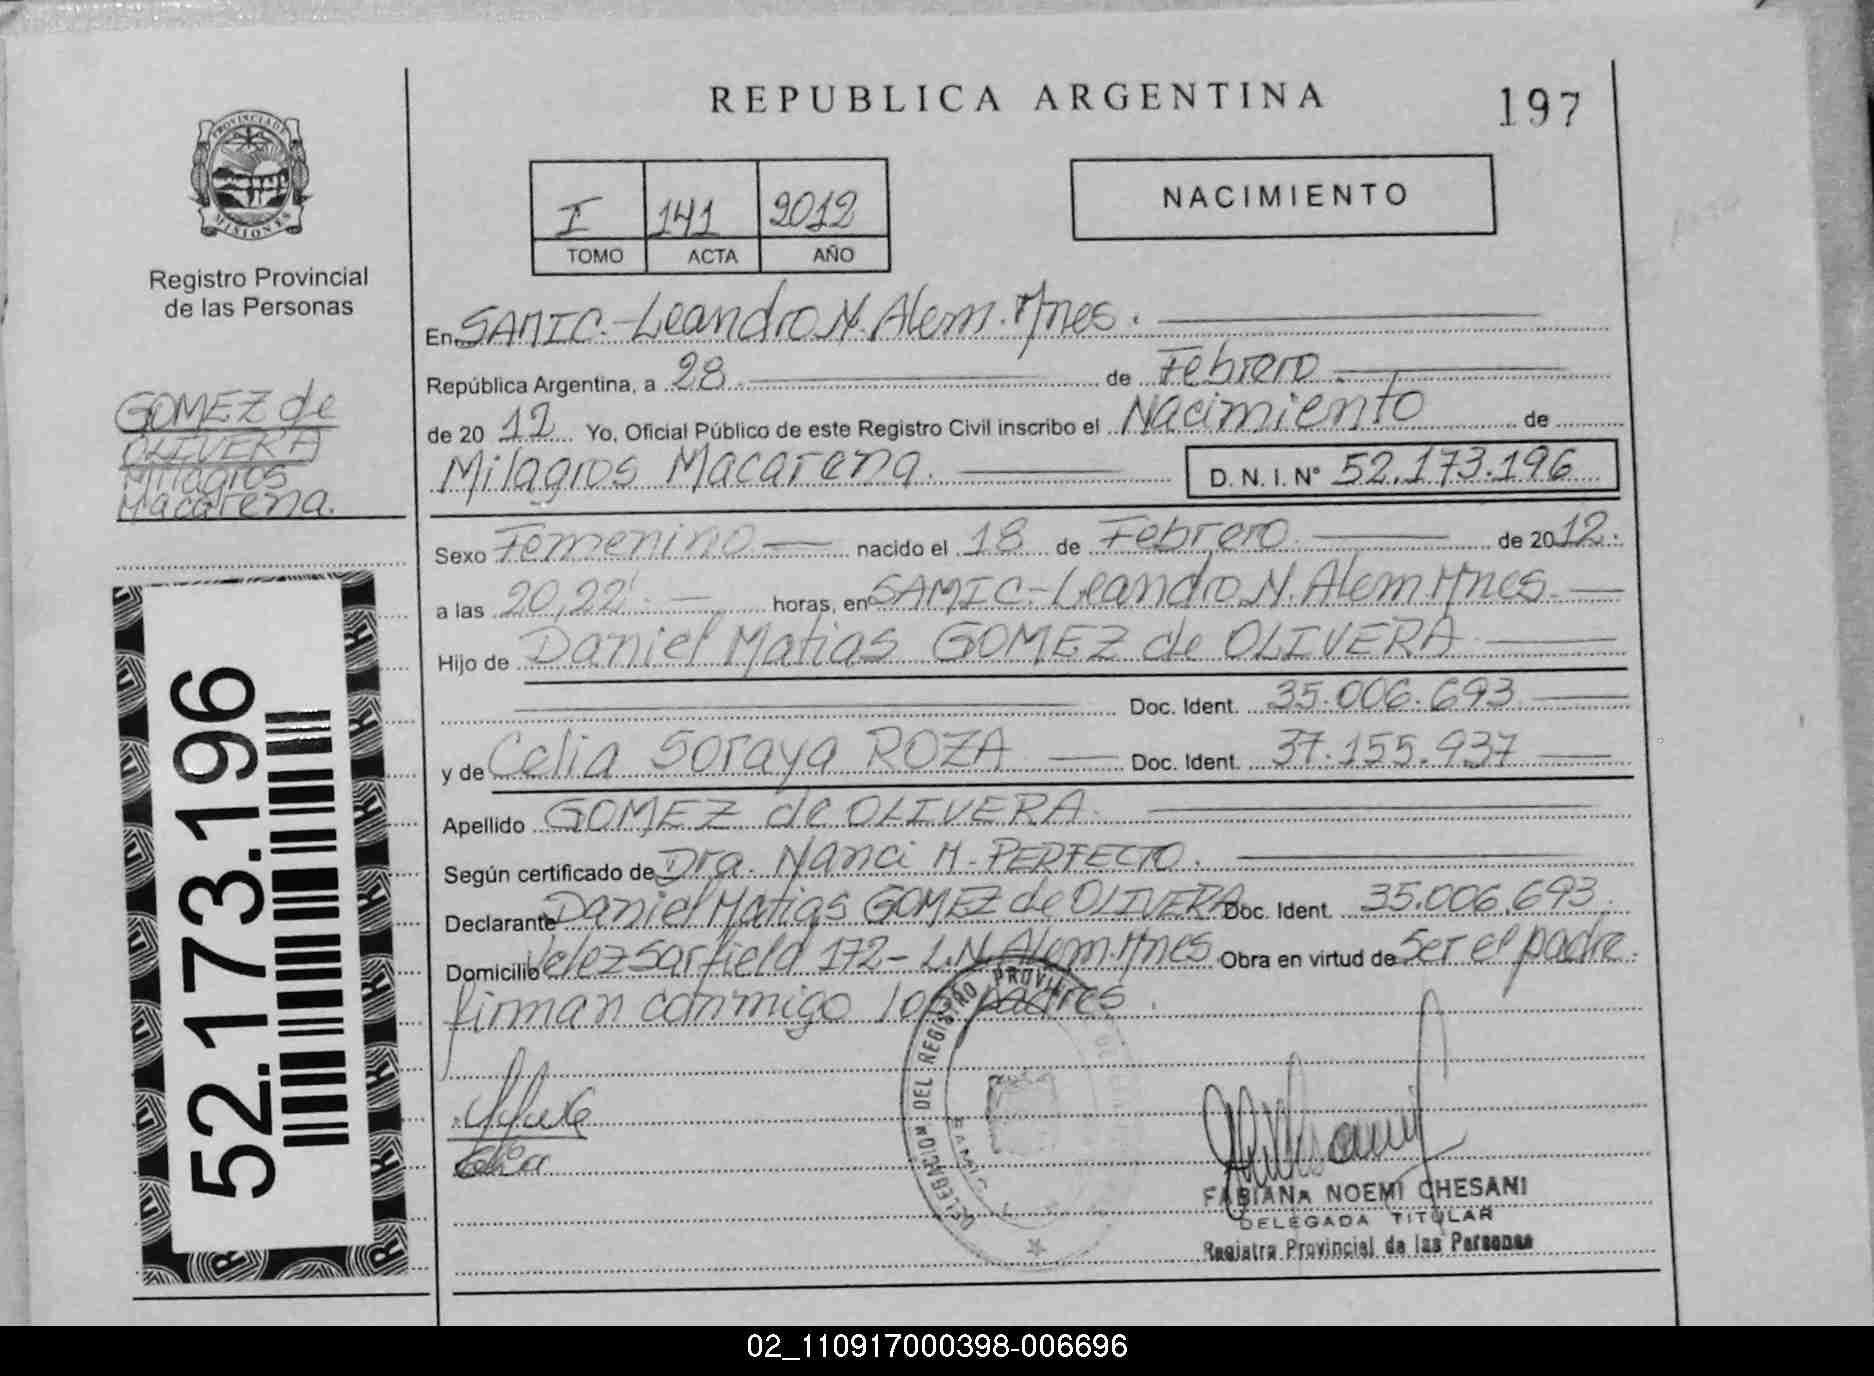 REPUBLICA ARGENTINA
197
PROVINCIA DE
MISIONES
Registro Provincial
de las Personas
I 141 2012
TOMO ACTA AÑO
NACIMIENTO
GOMEZ de
OLIVERA
Milagros
Macarena.
En SAMIC.-Leandro N. Alem. Mnes.
República Argentina, a 28 de Febrero
de 20 12 Yo, Oficial Público de este Registro Civil inscribo el Nacimiento de
Milagros Macarena. D. N. I. N° 52.173.196
Sexo Femenino nacido el 18 de Febrero de 2012.
a las 20,22' horas, en SAMIC-Leandro N. Alem Mnes.
Hijo de Daniel Matias GOMEZ de OLIVERA
Doc. Ident. 35.006.693
y de Celia Soraya ROZA Doc. Ident. 37.155.937
Apellido GOMEZ de OLIVERA.
Según certificado de Dra. Nanci M. PERFECTO.
Declarante Daniel Matias GOMEZ de OLIVERA Doc. Ident. 35.006.693
Domicilio Velez Sarfield 172- L.N. Alem. Mnes Obra en virtud de Ser el padre.
firman conmigo los padres.
52.173.196
DELEGACION DEL REGISTRO
FABIANA NOEMI CHESANI
DELEGADA TITULAR
Registro Provincial de las Personas
02_110917000398-006696